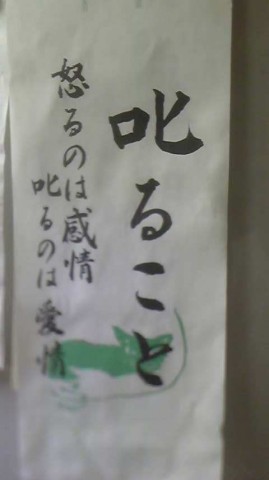 叱ること
怒るのは感情
叱るのは愛情